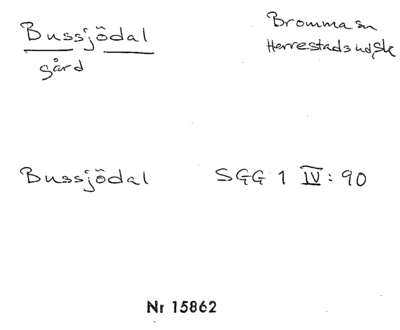 Bussjödal
gård
Bromma sn
Herrestads hd, Sk
Bussjödal SGG 1 IV: 90
Nr 15862